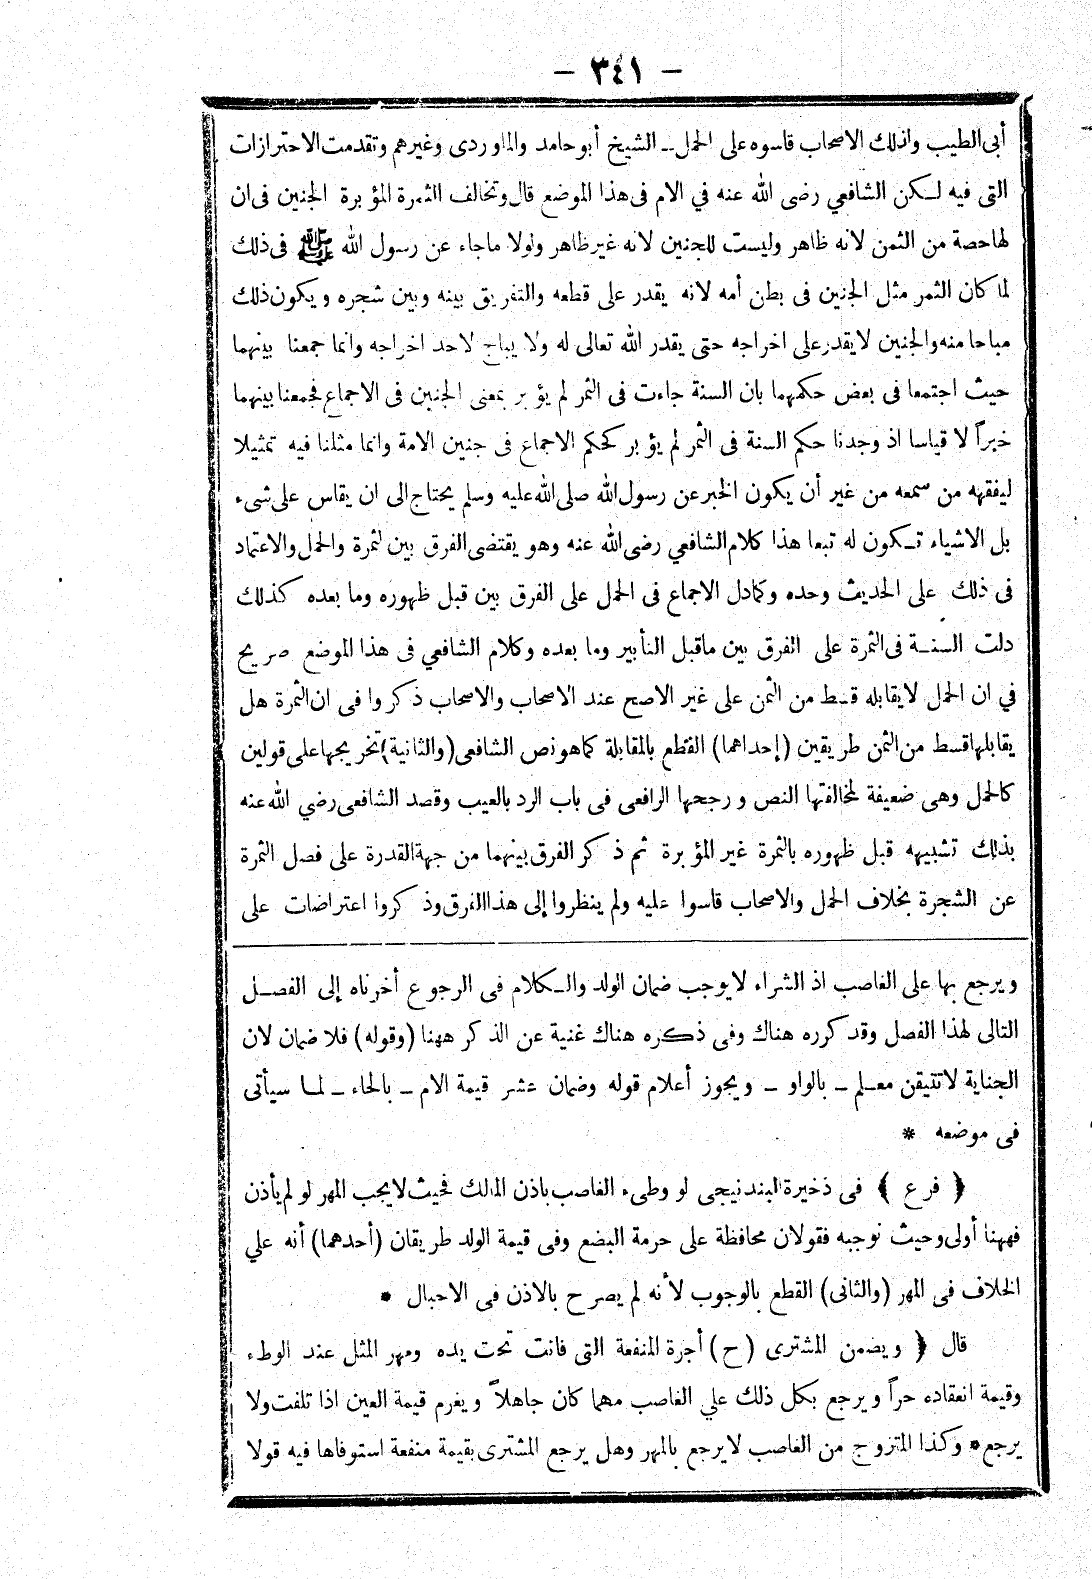 — ٣٤١ —
أبى الطيب واذلك الاصحاب قاسوه على الحمل ـ الشيخ أبو حامد والماوردى وغيرهم وتقدمت الاحترازات
التى فيه لكن الشافعي رضى الله عنه في الام فى هذا الموضع قال وتخالف الثمرة المؤبرة الجنين فى ان
لها حصة من الثمن لانه ظاهر وليست للجنين لانه غير ظاهر ولولا ماجاء عن رسول الله ﷺ فى ذلك
لما كان الثمر مثل الجنين فى بطن أمه لانه يقدر على قطعه والتفريق بينه وبين شجره ويكون ذلك
مباحا منه والجنين لا يقدر على اخراجه حتى يقدر الله تعالى له ولا يباح لاحد اخراجه وانما جمعنا بينهما
حيث اجتمعا فى بعض حكمهما بان السنة جاءت فى الثمر لم يؤبر بمعنى الجنين فى الاجماع فجمعنا بينهما
خبراً لا قياسا اذ وجدنا حكم السنة فى الثمر لم يؤبر كحكم الاجماع فى جنين الامة وانما مثلنا فيه تمثيلا
ليفقهه من سمعه من غير أن يكون الخبر عن رسول الله صلى الله عليه وسلم يحتاج الى ان يقاس على شىء
بل الاشياء تكون له تبعا هذا كلام الشافعي رضى الله عنه وهو يقتضى الفرق بين لثمرة والحمل والاعتماد
فى ذلك على الحديث وحده وكما دل الاجماع فى الحمل على الفرق بين قبل ظهوره وما بعده كذلك
دلت السنة فى الثمرة على الفرق بين ماقبل التأبير وما بعده وكلام الشافعي فى هذا الموضع صريح
في ان الحمل لايقابله قسط من الثمن على غير الاصح عند الاصحاب والاصحاب ذكروا فى ان الثمرة هل
يقابلها قسط من الثمن طريقين (إحداهما) القطع بالمقابلة كما هو نص الشافعى (والثانية) تخريجها على قولين
كالحمل وهى ضعيفة لمخالفتها النص ورجحها الرافعى فى باب الرد بالعيب وقصد الشافعى رضي الله عنه
بذلك تشبيهه قبل ظهوره بالثمرة غير المؤبرة ثم ذكر الفرق بينهما من جهة القدرة على فصل الثمرة
عن الشجرة بخلاف الحمل والاصحاب قاسوا عليه ولم ينظروا إلى هذا الفرق وذكروا اعتراضات على
ويرجع بها على الغاصب اذ الشراء لا يوجب ضمان الولد والكلام فى الرجوع أخرناه إلى الفصل
التالى لهذا الفصل وقد كرره هناك وفى ذكره هناك غنية عن الذكر ههنا (وقوله) فلا ضمان لان
الجناية لاتتيقن معلم ـ بالواو ـ ويجوز أعلام قوله وضمان عشر قيمة الام ـ بالحاء ـ لما سيأتى
فى موضعه *
﴿ فرع ﴾ فى ذخيرة البندنيجى لو وطىء الغاصب باذن المالك فحيث لايجب المهر لو لم يأذن
فههنا أولى وحيث نوجبه فقولان محافظة على حرمة البضع وفى قيمة الولد طريقان (أحدهما) أنه علي
الخلاف فى المهر (والثانى) القطع بالوجوب لأنه لم يصرح بالاذن فى الاحبال *
قال ﴿ ويضمن المشترى (ح) أجرة المنفعة التى فاتت تحت يده ومهر المثل عند الوطء
وقيمة انعقاده حراً ويرجع بكل ذلك علي الغاصب مهما كان جاهلاً ويغرم قيمة العين اذا تلفت ولا
يرجع * وكذا المتزوج من الغاصب لا يرجع بالمهر وهل يرجع المشترى بقيمة منفعة استوفاها فيه قولا